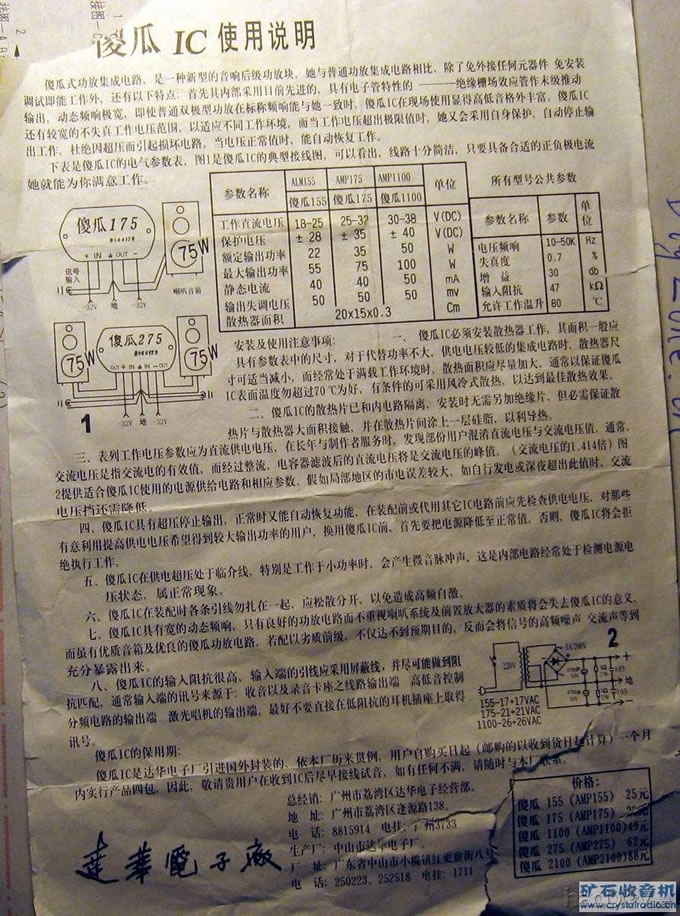 傻瓜 IC 使用说明
傻瓜式功放集成电路，是一种新型的音响后级功放块，她与普通功放集成电路相比，除了免外接任何元器件 免安装
调试即能工作外，还有以下特点：首先其内部采用目前先进的，具有电子管特性的 ———绝缘栅场效应管作末级推动
输出，动态频响极宽，即使普通双极型功放在标称频响能与她一致时，傻瓜IC在现场使用显得高低音格外丰富，傻瓜IC
还有较宽的不失真工作电压范围，以适应不同工作环境，而当工作电压超出极限值时，她又会采用自身保护，自动停输
出工作，杜绝因超压而引起损坏电路。当电压正常值时，能自动恢复工作。
下表是傻瓜IC的电气参数表，图1是傻瓜IC的典型接线图，可以看出，线路十分简洁，只要具备合适的正负极电流
她就能为你满意工作。
傻瓜175
+ IN ⏚ OUT -
75W
讯号
输入
-32V 地 -32V
喇叭音箱
傻瓜275
75W
75W
-32V 地 -32V
1
参数名称 ALM155 AMP175 AMP1100 单位
傻瓜155 傻瓜175 傻瓜1100
工作直流电压 18-25 25-32 30-38 V(DC)
保护电压 ± 28 ± 35 ± 40 V(DC)
额定输出功率 22 35 50 W
最大输出功率 55 75 100 W
静态电流 40 40 50 mA
输出失调电压 50 50 50 mv
散热器面积 20x15x0.3 Cm
所有型号公共参数
参数名称 参数 单位
电压频响 10-50K Hz
失真度 0.7 %
增 益 30 db
输入阻抗 47 kΩ
允许工作温升 80 ℃
安装及使用注意事项： 一、傻瓜IC必须安装散热器工作，其面积一般应
具有参数表中的尺寸，对于代替功率不大，供电电压较低的集成电路时，散热器尺
寸可适当减小，而经常处于满载工作环境时，散热面积应尽量加大，通常以保证傻瓜
IC表面温度勿超过70℃为好，有条件的可采用风冷式散热，以达到最佳散热效果。
二、傻瓜IC的散热片已和内电路隔离，安装时无需另加绝缘片，但必需保证散
热片与散热器大面积接触，并在散热片间涂上一层硅脂，以利导热。
三、表列工作电压参数应为直流供电电压，在长年与制作者服务时，发现部份用户混淆直流电压与交流电压值，通常，
交流电压是指交流电的有效值，而经过整流、电容器滤波后的直流电压将是交流电压的峰值，（交流电压的1.414倍）图
2提供适合傻瓜IC使用的电源供给电路和相应参数，假如局部地区的市电误差较大，如自行发电或深夜超出此值时，交流
电压挡还需降低。
四、傻瓜IC具有超压停止输出，正常时又能自动恢复功能，在装配前或代用其它IC电路前应先检查供电电压，对那些
有意利用提高供电电压希望得到较大输出功率的用户，换用傻瓜IC前，首先要把电源降低至正常值，否则，傻瓜IC将会拒
绝执行工作。
五、傻瓜IC在供电超压处于临介线，特别是工作于小功率时，会产生微音脉冲声，这是内部电路经常处于检测电源电
压状态，属正常现象。
六、傻瓜IC在装配时各条引线勿扎在一起，应松散分开，以免造成高频自激。
七、傻瓜IC具有宽的动态频响，只有良好的功放电路而不重视喇叭系统及前置放大器的素质将会失去傻瓜IC的意义，
而虽有优质音箱及优良的傻瓜功放电路，若配以劣质前级，不仅达不到预期目的，反而会将信号的高频噪声 交流声等到
充分暴露出来。
八、傻瓜IC的输入阻抗很高，输入端的引线应采用屏蔽线，并尽可能做到阻
抗匹配，通常输入端的讯号来源于：收音以及录音卡座之线路输出端 高低音控制
分频电路的输出端 激光唱机的输出端，最好不要直接在低阻抗的耳机插座上取得
讯号。
220V
5A/200V
2
+
地
-
155-17+17VAC
175-21+21VAC
1100-26+26VAC
傻瓜IC的保用期：
傻瓜IC是达华电子厂引进国外封装的，依本厂历来惯例，用户自购买日起（邮购的以收到货日起计算）一个月
内实行产品四包，因此，敬请贵用户在收到IC后尽早接线试音，如有任何不满，请随时与本厂联系。
总经销：广州市荔湾区达华电子经营部，
地 址：广州市荔湾区逢源路138，
电 话：8815914 电挂：广州3733
生产厂：中山市达华电子厂，
厂 址：广东省中山市小榄镇红更寮街八号
电 话：250223，252518 电挂：1711
達華電子廠
价格：
傻瓜 155 (AMP155) 25元
傻瓜 175 (AMP175) 元
傻瓜 1100 (AMP1100)49元
傻瓜 275 (AMP275) 62元
傻瓜 2100 (AMP2100)88元
矿石收音机
www.crystalradio.cn